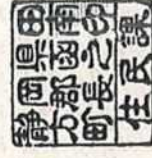 静岡県田
方郡函南
町長之印
住民課